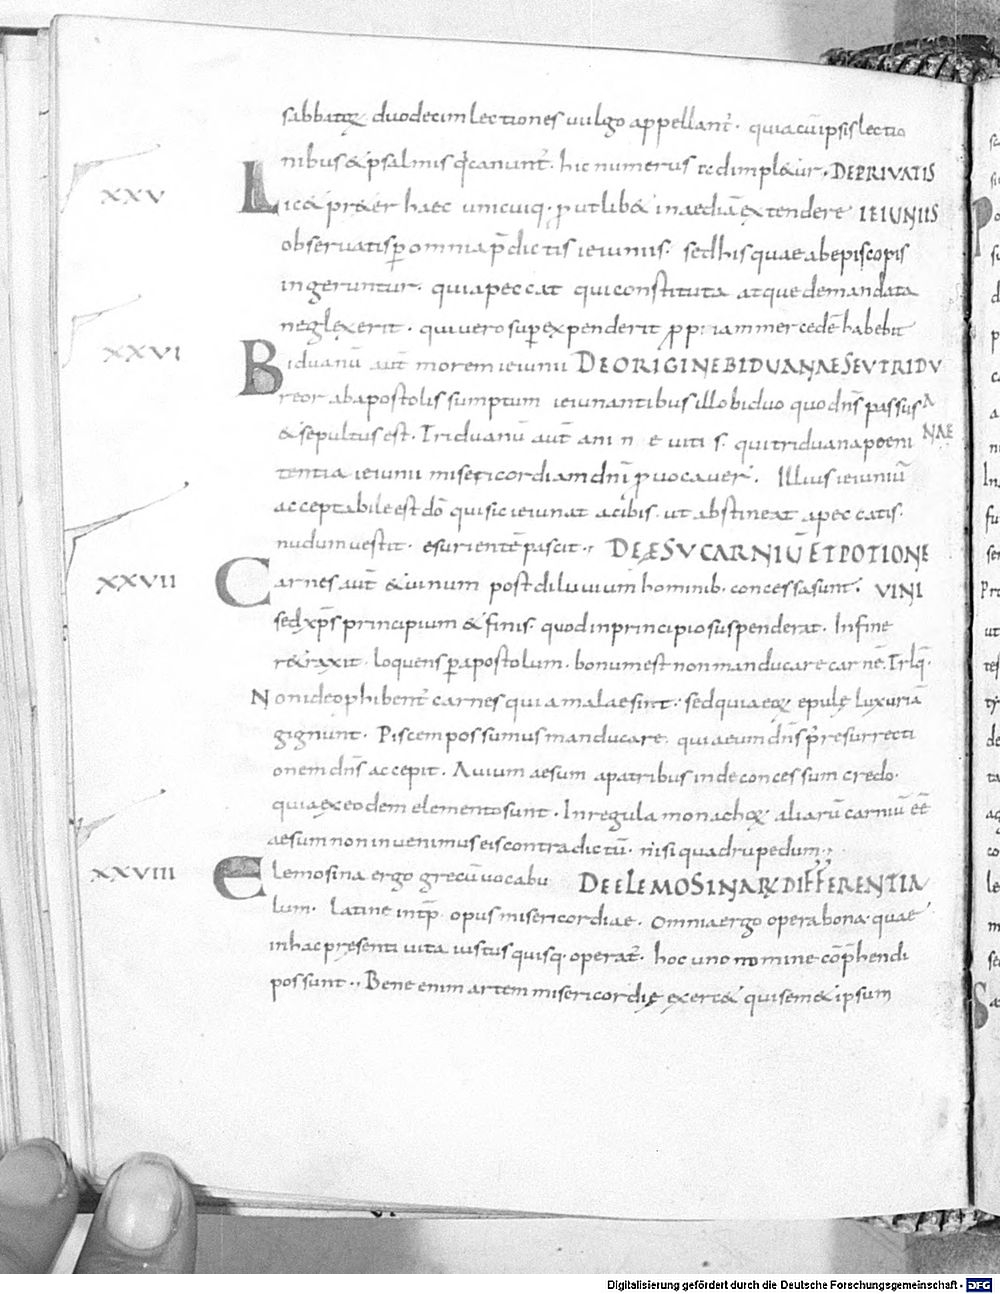 sabbatiꝝ duodecim lectiones uulgo appellant̃. quia cũ ipsis lectio
nibus & psalmis q̃ canunt̃. hic numerus redimpl&ur. DE PRIVATIS
XXV Lic& pr&er haec unicuiq. ꝓut lib& inaediã extendere IEIUNIIS
obseruatis ꝑ omnia p̃dictis ieiuniis. sed his quae ab episcopis
ingeruntur. quia peccat qui constituta atque demandata
neglexerit. qui uero superexpenderit ꝓp iam mercedẽ habebit
XXVI Biduanũ aut̃ morem ieiunii DE ORIGINE BIDUANAE SEU TRIDU
reor ab apostolis sumptum ieiunantibus illo biduo quo dñs passus A
& sepultus est. Triduanũ aut̃ qui triduana poeni NAE
tentia ieiunii misericordiam dñi ꝓuocauer̃. Illius ieiuniũ
acceptabile est dõ qui sic ieiunat a cibis. ut abstineat a peccatis.
nudum uestit. esurientẽ pascit. DE ESU CARNIŨ ET POTIONE
XXVII Carnes aut̃ & uinum post diluuium hominib. concessa sunt. VINI
sed xp̃s principium & finis. quod in principio suspenderat. In fine
r&raxit. loquens ꝑ apostolum. bonum est non manducare carnẽ. & rlq̃.
Non ideo ꝓhibent̃ carnes quia malae sint. sed quia eoꝝ epulę luxuriã
gignunt. Piscem possumus manducare. quia eum dñs p̃ resurrecti
onem dñs accepit. Auium aesum a patribus inde concessum credo.
quia ex eodem elemento sunt. In regula monachoꝝ aliarũ carniũ eẽ
aesum non inuenimus eis contradictũ. nisi quadrupedum.
XXVIII Elemosina ergo grecũ uocabu DE ELEMOSINARꝝ DIFFERENTIA
lum. Latine int̃p̃. opus misericordiae. Omnia ergo opera bona. quae
in hac presenti uita iustus quisq. operat̃. hoc uno nomine cõp̃hendi
possunt. Bene enim artem misericordię exerc& qui sem& ipsum
Digitalisierung gefördert durch die Deutsche Forschungsgemeinschaft - DFG